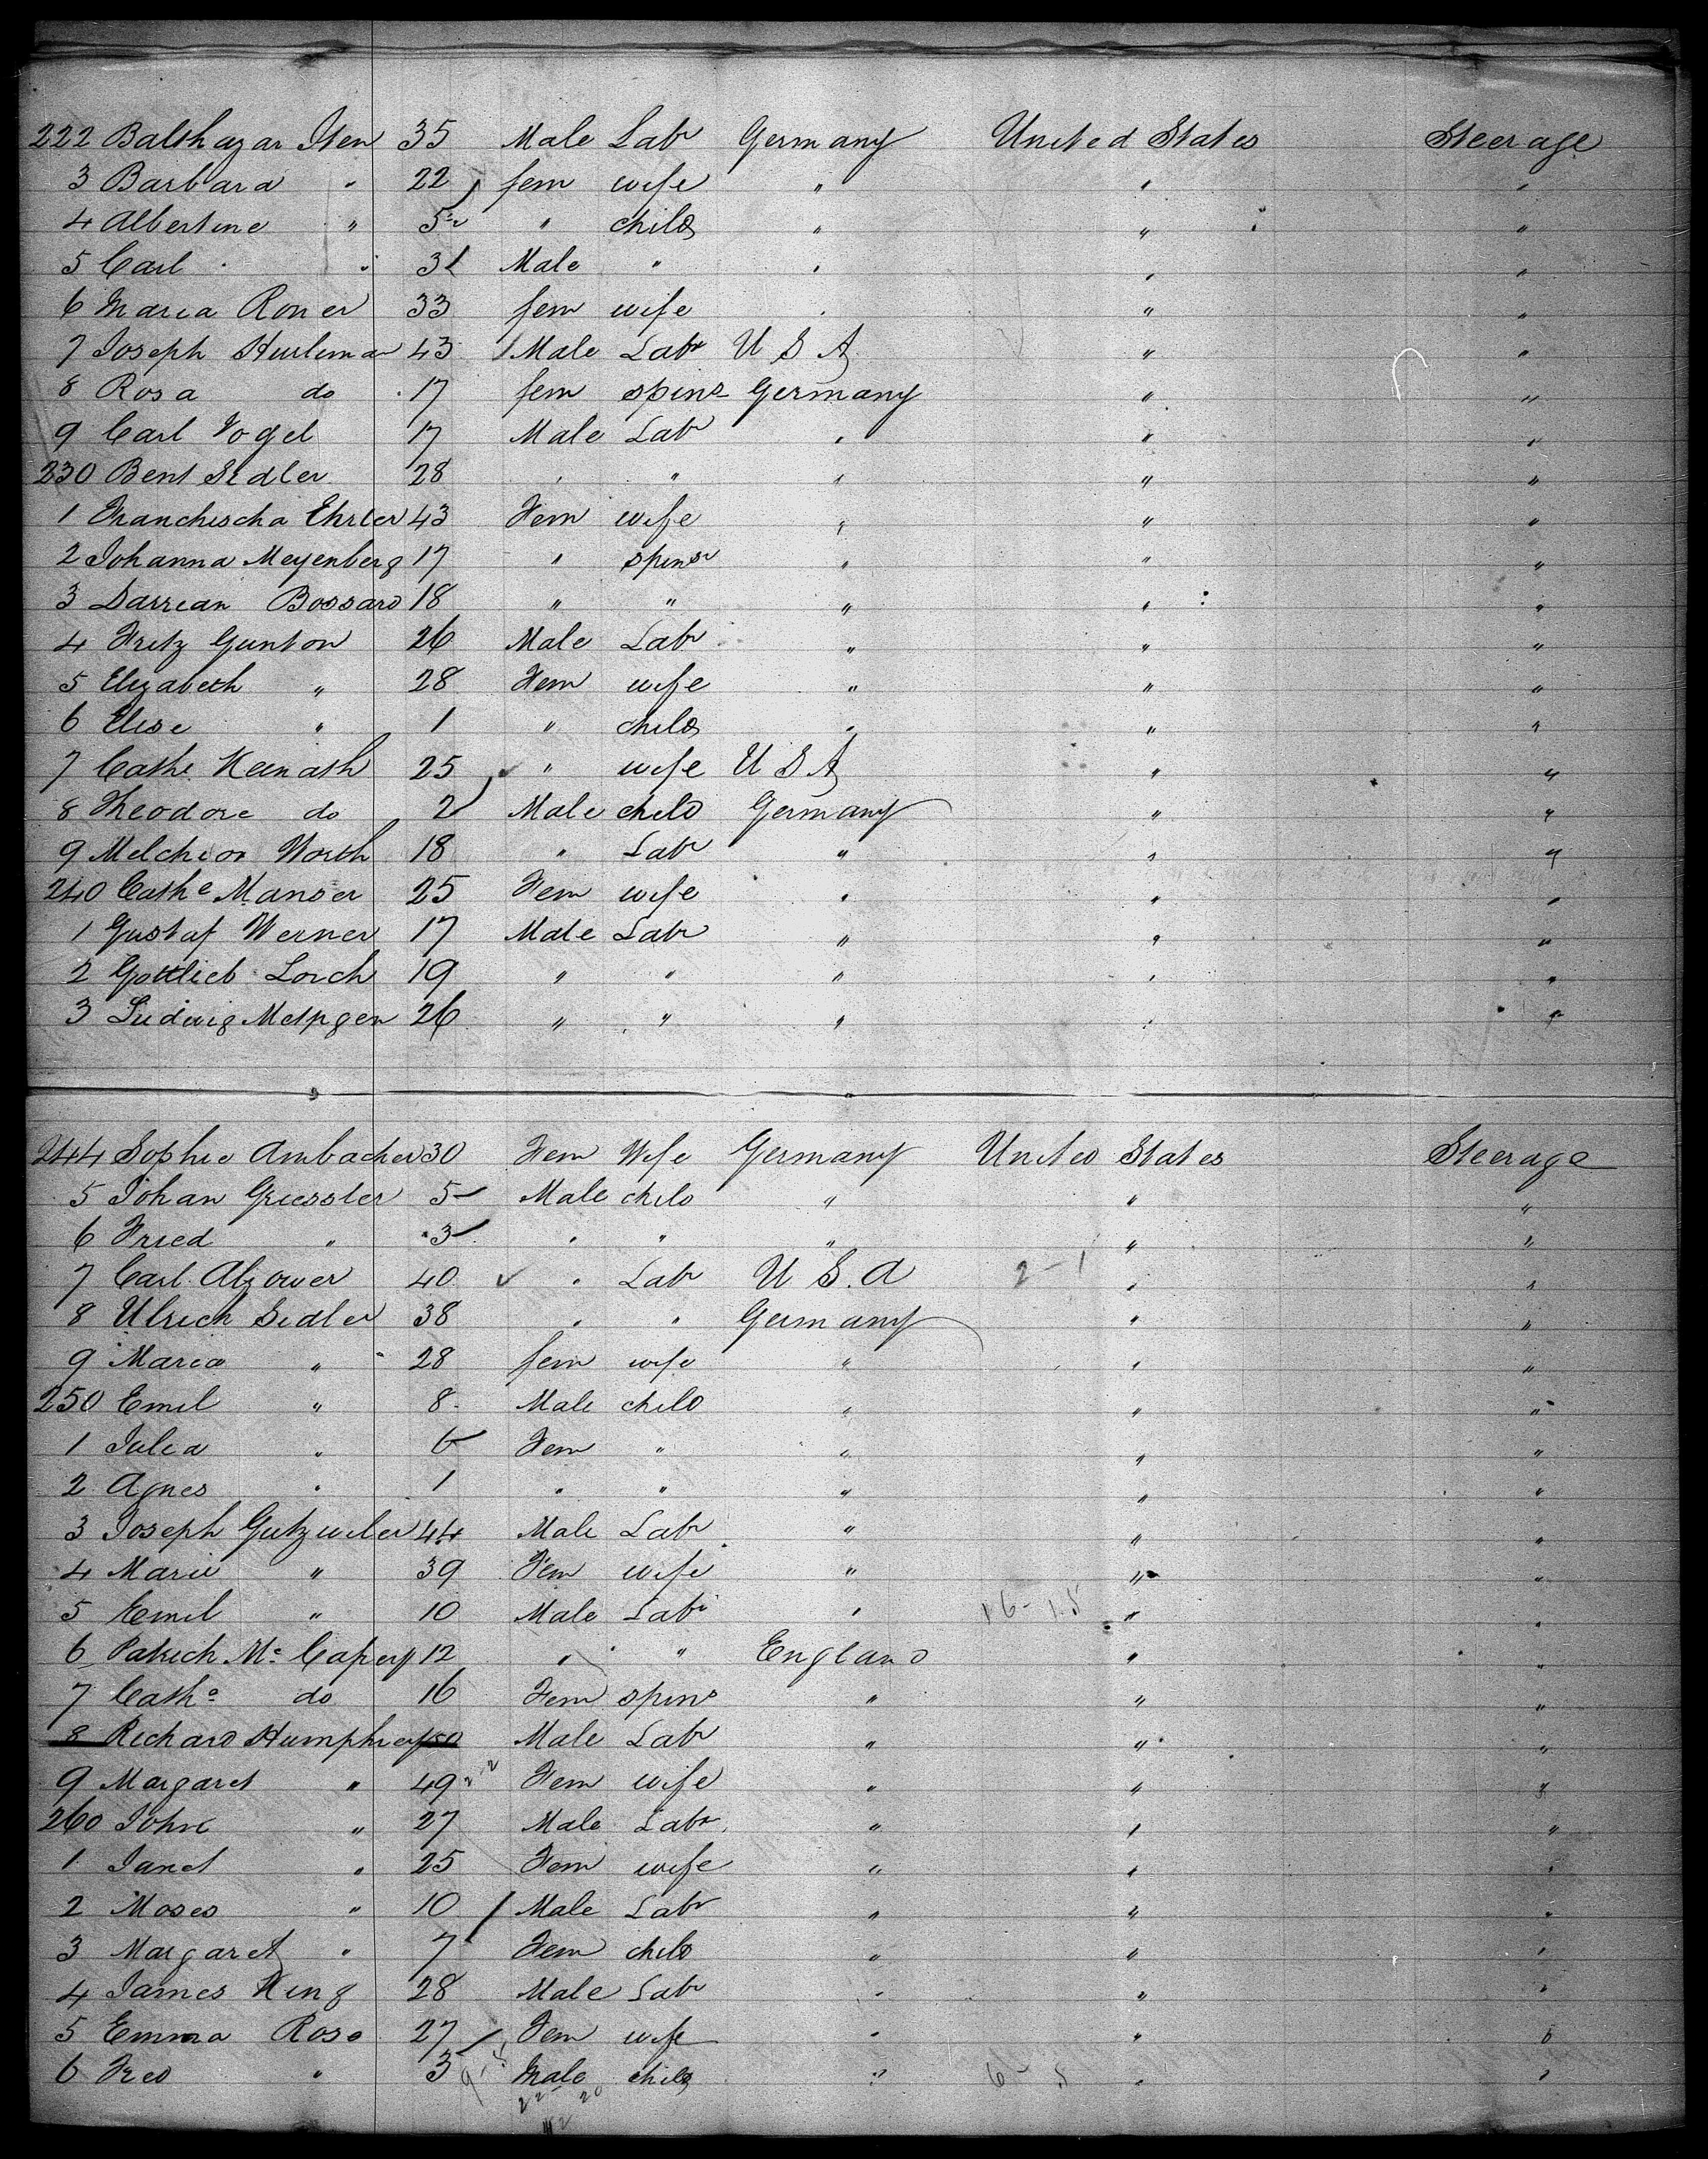 222 Balthazar Iten 35 Male Labr Germany United States Steerage
3 Barbara " 22 fem wife " " "
4 Albertine " 5 " child " " "
5 Carl " 3 Male " " " "
6 Maria Roner 33 fem wife " " "
7 Joseph Hurliman 43 Male Labr U S A " "
8 Rosa do 17 fem spins Germany " "
9 Carl Vogel 17 Male Labr " " "
230 Bent Sedler 28 " " " " "
1 Franchischa Ehrler 43 Fem wife " " "
2 Johanna Meyenberg 17 " spinsr " " "
3 Darrean Bossard 18 " " " " "
4 Fritz Gunton 26 Male Labr " " "
5 Elizabeth " 28 Fem wife " " "
6 Elise " 1 " child " " "
7 Cathe Keinath 25 " wife U S A " "
8 Theodore do 2 Male child Germany " "
9 Melchior North 18 " Labr " " "
240 Cathe Manser 25 Fem wife " " "
1 Gustaf Werner 17 Male Labr " " "
2 Gottlieb Lorch 19 " " " " "
3 Ludwig Metpger 26 " " " " "
244 Sophie Ambacher 30 Fem Wife Germany United States Steerage
5 Johan Griessler 5 Male child " " "
6 Fried " 3 " " " " "
7 Carl Alzower 40 " Labr U S. A 2-1 " "
8 Ulrich Sedler 38 " " Germany " "
9 Maria " 28 fem wife " " "
250 Emil " 8 Male child " " "
1 Julia " 6 Fem " " " "
2 Agnes " 1 " " " " "
3 Joseph Gutzwiler 44 Male Labr " " "
4 Marie " 39 Fem wife " " "
5 Emil " 10 Male Labr " 16-1.5 " "
6 Patrich Mc Capery 12 " " England " "
7 Cathe do 16 Fem spins " " "
8 Richard Humphrey 50 Male Labr " " "
9 Margaret " 49 Fem wife " " "
260 John " 27 Male Labr " " "
1 Janet " 25 Fem wife " " "
2 Moses " 10 Male Labr " " "
3 Margaret " 7 Fem child " " "
4 James King 28 Male Labr " " "
5 Emma Rose 27 Fem wife " " "
6 Fred " 3 Male child " 6- .5 " "
22 20